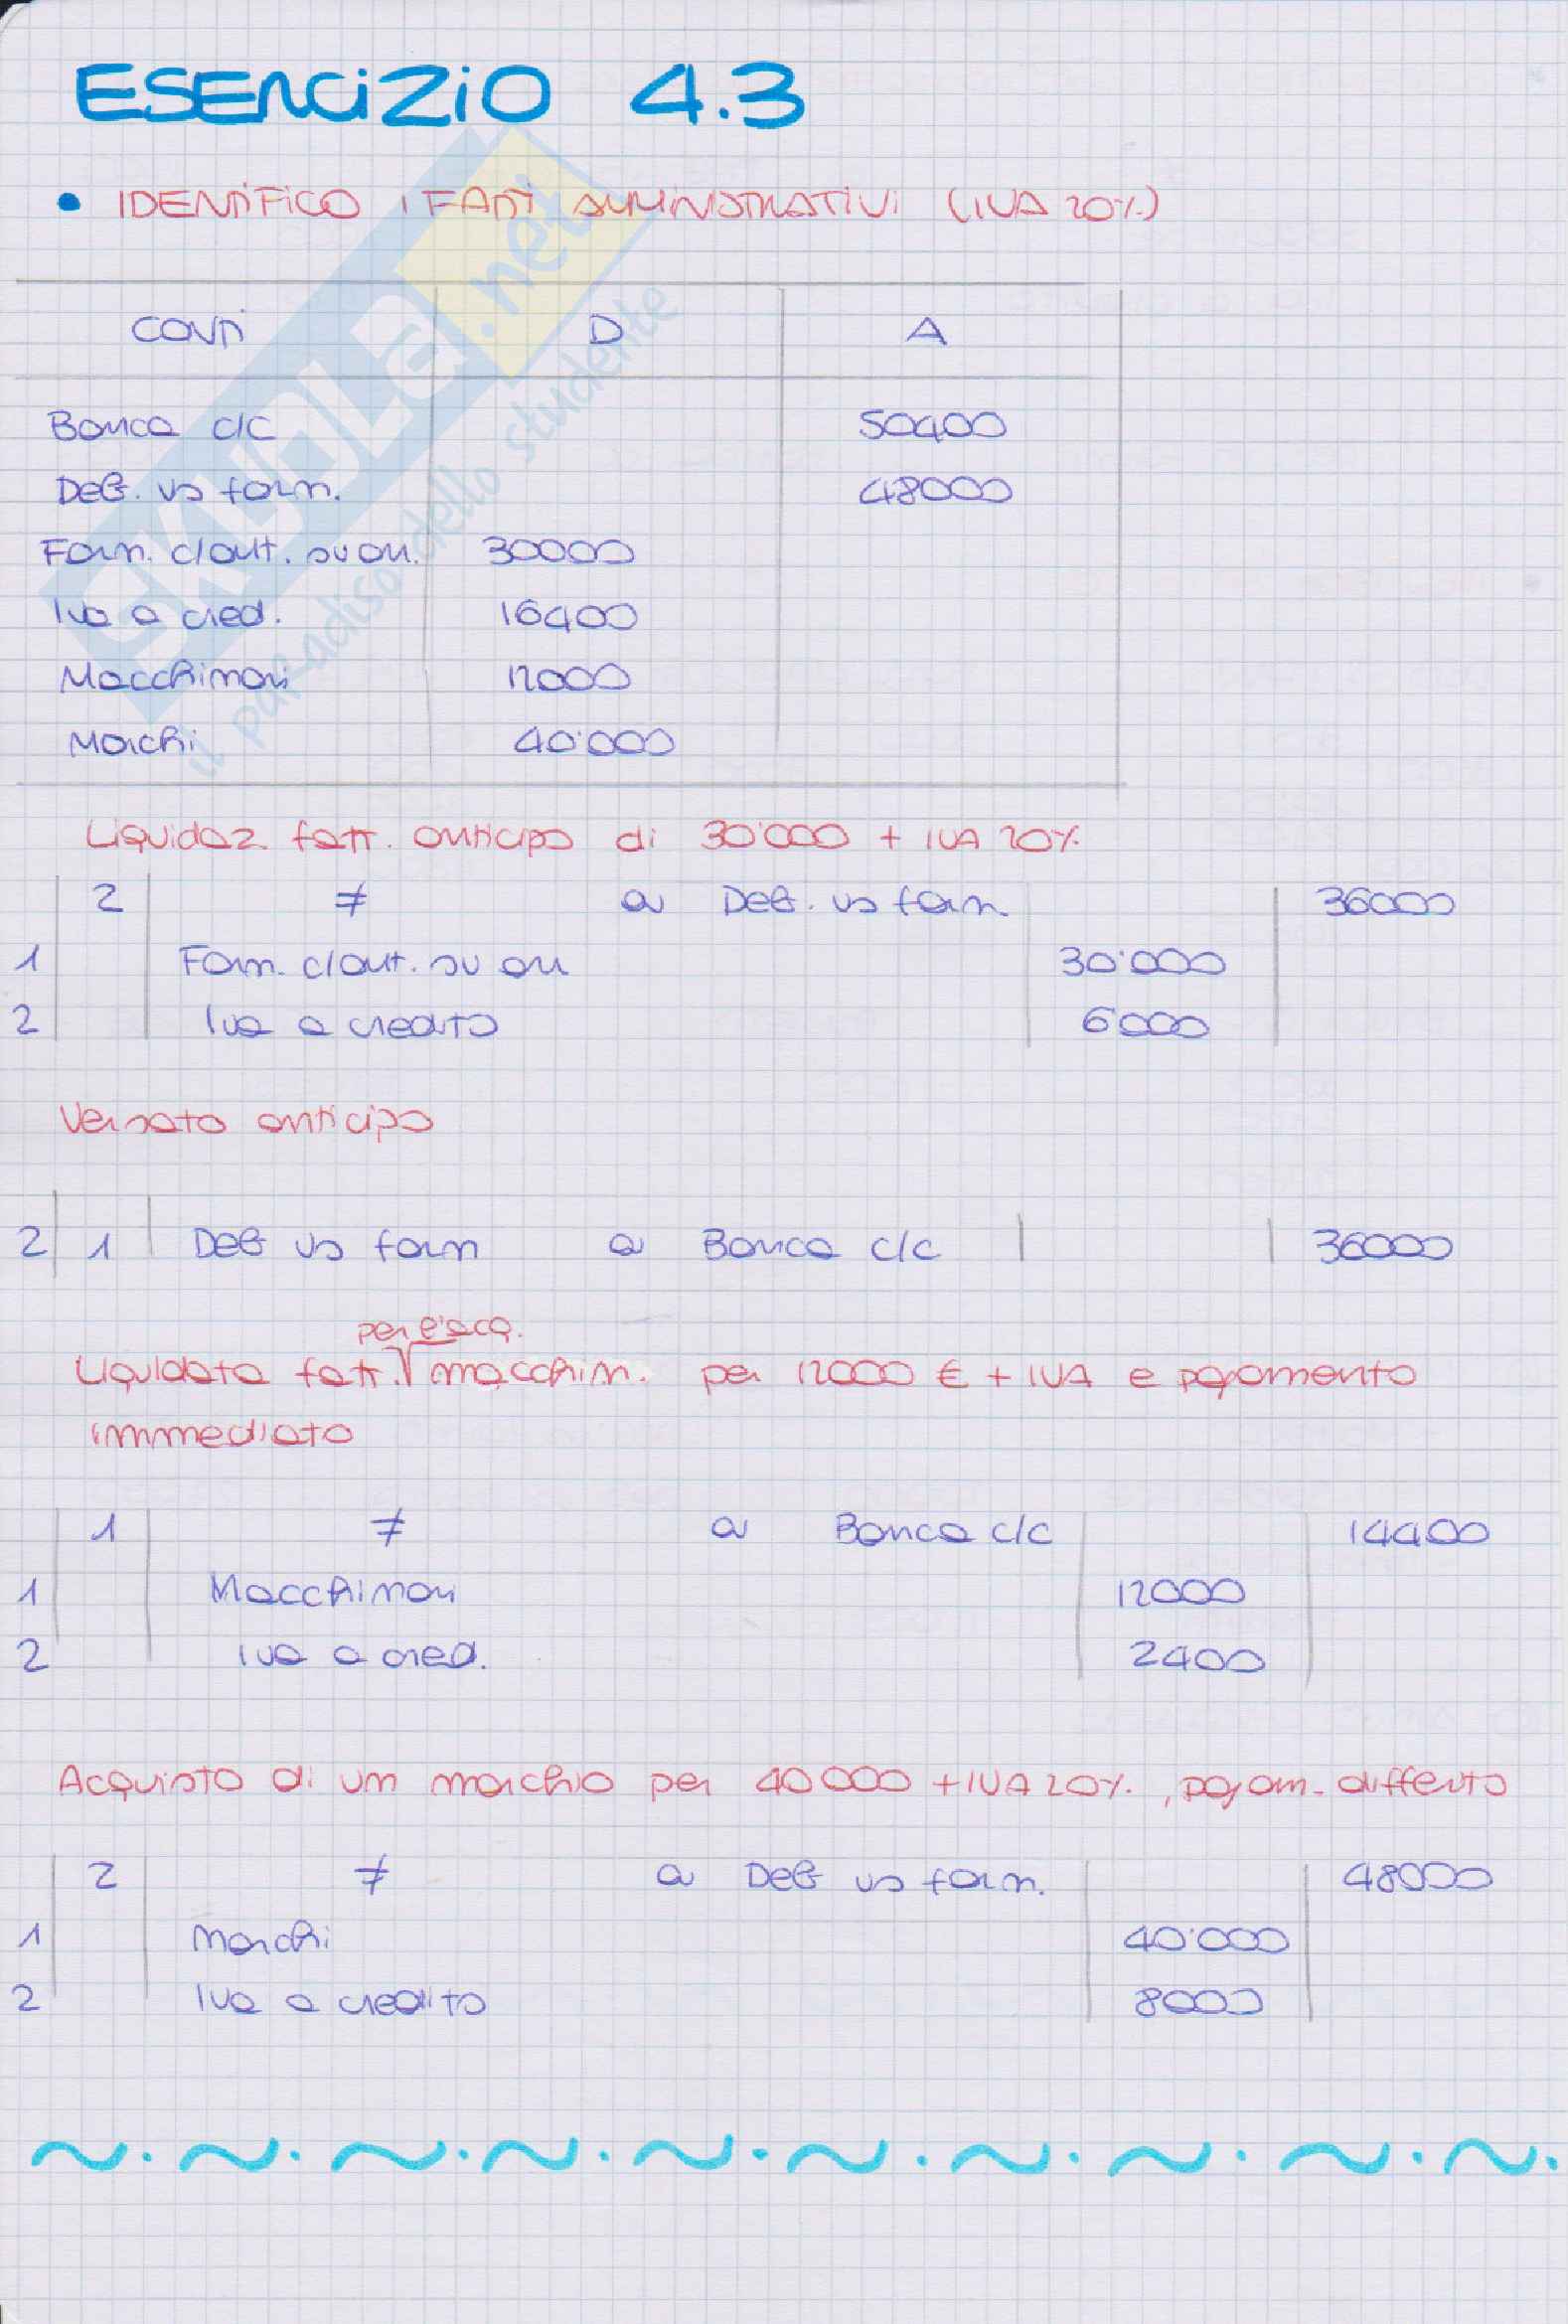 ESERCIZIO 4.3
• IDENTIFICO I FATTI AMMINISTRATIVI (IVA 20%)
CONTI D A
Banca c/c 50400
Deb. vs forn. 48000
Forn. c/ant. su im. 30000
Iva a cred. 16400
Macchinari 12000
Marchi 40'000
SKUOLA.net
il paradiso dello studente
Liquidaz. fatt. anticipo di 30'000 + IVA 20%
2 ≠ a Deb. vs forn. 36000
1 Forn. c/ant. su im 30'000
2 Iva a credito 6000
Versato anticipo
2 1 Deb vs forn a Banca c/c 36000
per l'acq.
Liquidata fatt. macchin. per 12000 € + IVA e pagamento
immediato
1 ≠ a Banca c/c 14400
1 Macchinari 12000
2 Iva a cred. 2400
Acquisto di un marchio per 40000 + IVA 20%, pagam. differito
2 ≠ a Deb vs forn. 48000
1 Marchi 40'000
2 Iva a credito 8000